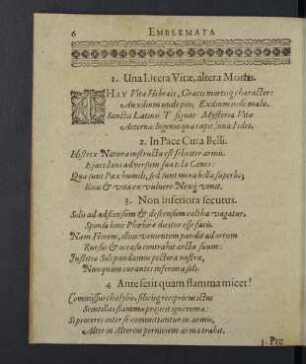 6 EMBLEMATA
1. Una Litera Vitæ, altera Mortis.
THAV Vita Hebræis, Græcis mortis character:
Auxilium unde piis, Exitium inde malis.
Sancta Latinis T signat Mysteria Vitæ
Æternæ: Ingenio quæ capit una Fides.
2. In Pace Cura Belli.
Histrix Naturæ instructa est feliciter armis,
Ejaculans adversum sua tela Canes:
Qua sunt Pax humilis, sed sunt mota bella superbis;
Illinc & vita ex vulnere venit.
3. Non inferiora secutus.
Solis ad adscensum & descensum caltha vagatur,
Sponsa hinc Phœbææ dicitur esse facis.
Nam Florem, illius venientem pandit ad ortum
Rursus & occasu contrahit arcta suum:
Justitiæ Soli pandamus pectora nostra,
Nunquam curantes inferiora soli.
4 Ante ferit quam flamma micet!
Commissus chalybs, silicis reciprocus ictus
Scintillas flammæ projicit igniromæ:
Si proceres inter se committuntur in armis,
Alter in Alterius perniciem arma trahit.